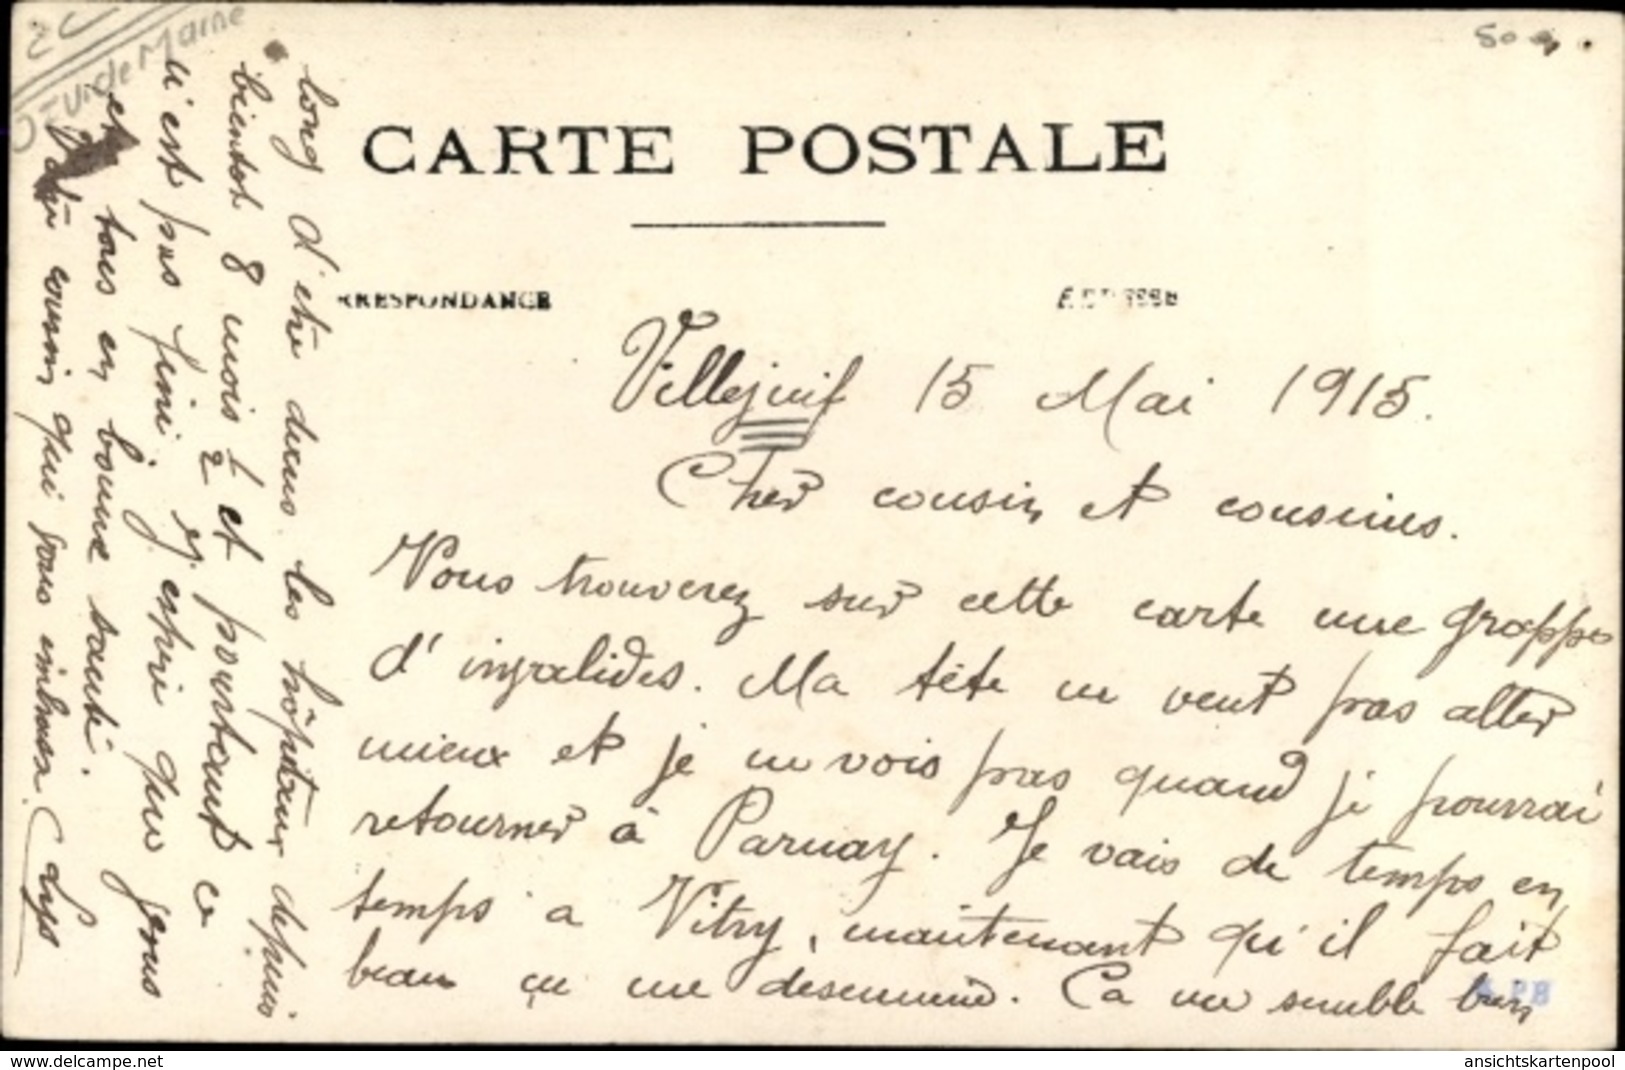 CARTE POSTALE
RRESPONDANCE
Villejuif 15 Mai 1915.
Cher cousin et cousines.
Vous trouverez sur cette carte une grappe
d'invalides. Ma tête ne veut pas aller
mieux et je ne vois pas quand je pourrai
retourner à Parnay. Je vais de temps en
temps a Vitry, maintenant qu'il fait
beau ça me desennuie. Ça me semble bien
long d'être dans les hôpitaux depuis
bientot 8 mois 1/2 et pourtant ce
n'est pas fini. j'espère que vous
êtes tous en bonne santé.
cousin qui vous embrasse.
50
ansichtskartenpool
https://www.delcampe.net